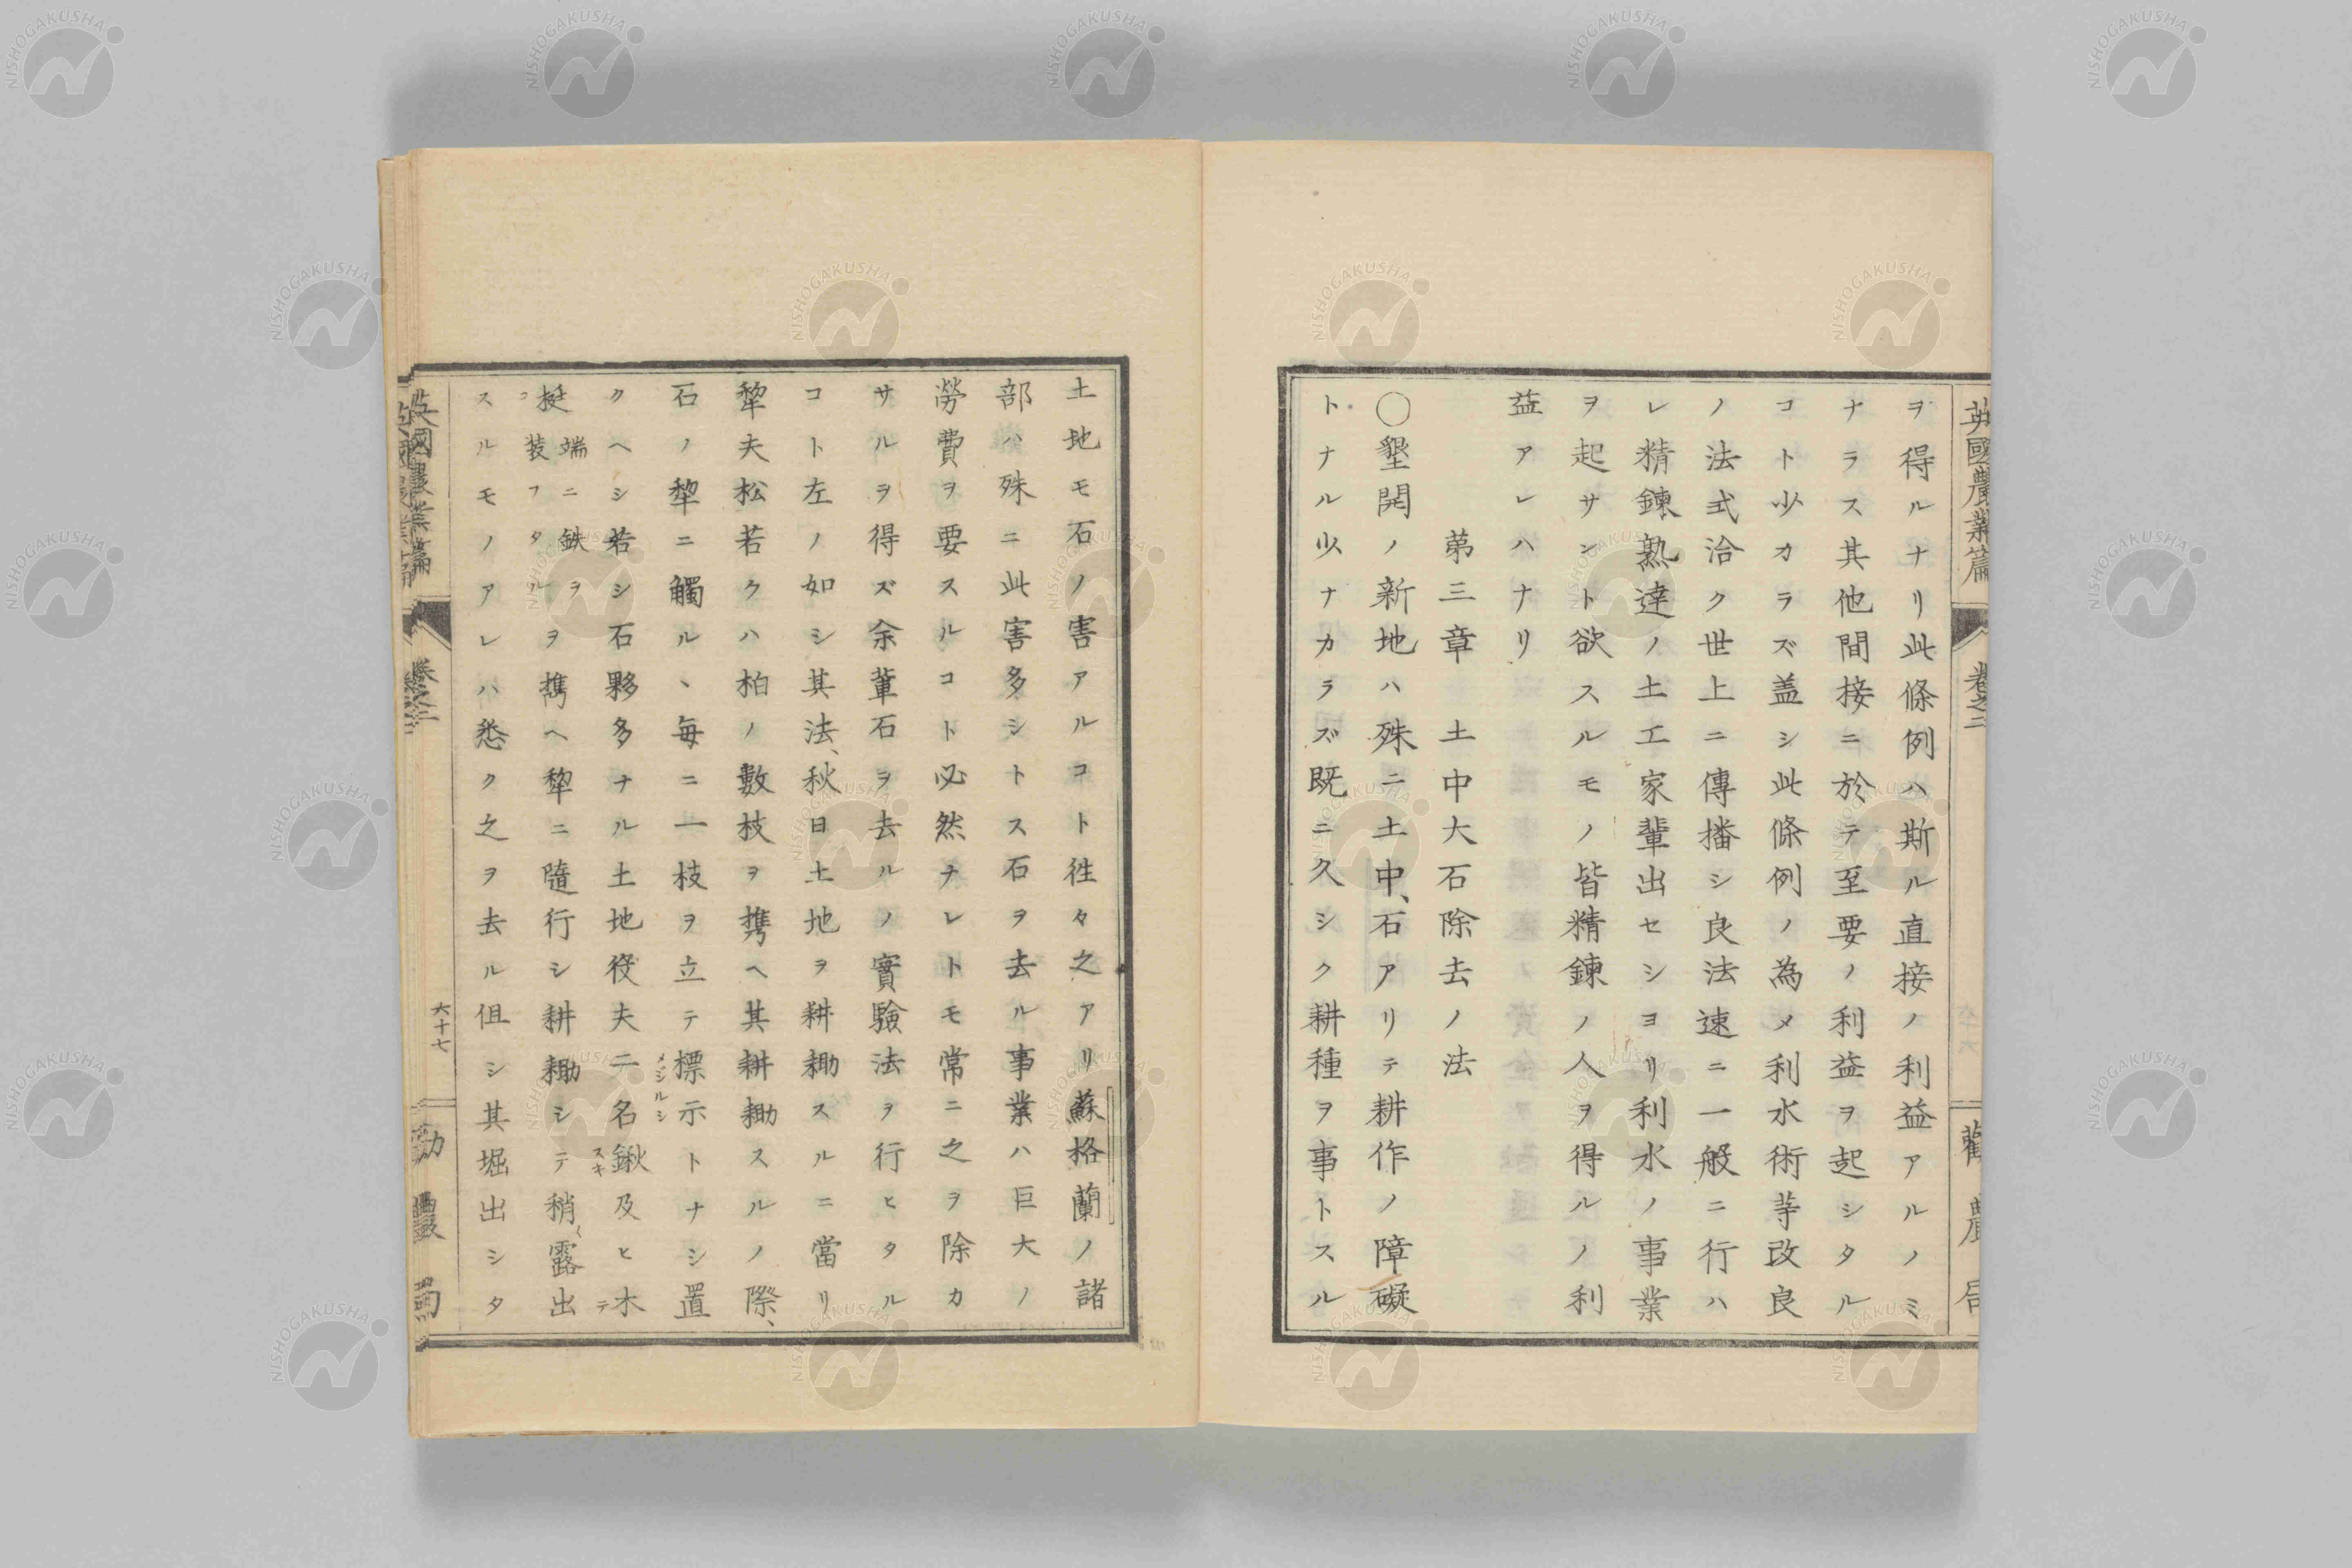 英國農業篇 卷之二 勸農局
ヲ得ルナリ此條例ハ斯ル直接ノ利益アルノミ
ナラス其他間接ニ於テ至要ノ利益ヲ起シタル
コト少カラズ盖シ此條例ノ為メ利水術等改良
ノ法式洽ク世上ニ傳播シ良法速ニ一般ニ行ハ
レ精鍊熟達ノ土工家輩出セシヨリ利水ノ事業
ヲ起サント欲スルモノ皆精鍊ノ人ヲ得ルノ利
益アレハナリ
第三章 土中大石除去ノ法
〇墾開ノ新地ハ殊ニ土中、石アリテ耕作ノ障礙
トナル少ナカラズ既ニ久シク耕種ヲ事トスル
土地モ石ノ害アルコト徃々之アリ蘇格蘭ノ諸
部ハ殊ニ此害多シトス石ヲ去ル事業ハ巨大ノ
勞費ヲ要スルコト必然ナレトモ常ニ之ヲ除カ
サルヲ得ズ余輩石ヲ去ルノ實驗法ヲ行ヒタル
コト左ノ如シ其法、秋日土地ヲ耕耡スルニ當リ
犂夫松若クハ柏ノ數枝ヲ携ヘ其耕耡スルノ際、
石ノ犂ニ觸ルヽ每ニ一枝ヲ立テ標示トナシ置
メジルシ
クヘシ若シ石夥多ナル土地役夫二名鍬及ヒ木
スキ
テ
梃端ニ鉄ヲ装フタルヲ携ヘ犂ニ隨行シ耕耡シテ稍露出
コ
スルモノアレハ悉ク之ヲ去ル伹シ其堀出シタ
英國農業篇 卷之二 六十七 勸農局
NISHOGAKUSHA